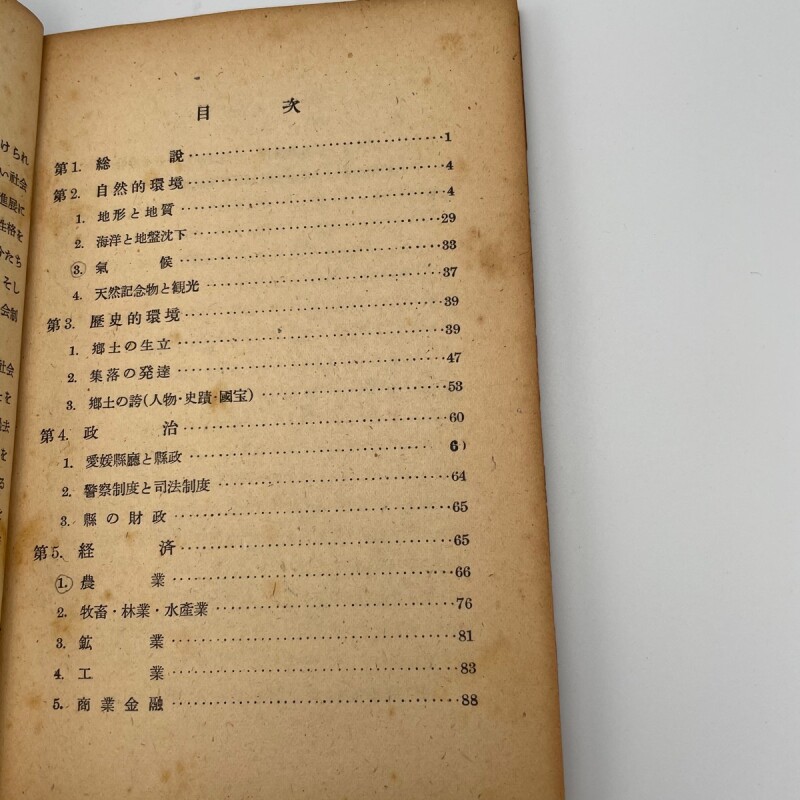 目次
第1. 総説 1
第2. 自然的環境 4
1. 地形と地質 4
2. 海洋と地盤沈下 29
3. 氣候 33
4. 天然記念物と観光 37
第3. 歴史的環境 39
1. 鄕土の生立 39
2. 集落の発達 47
3. 鄕土の誇(人物・史蹟・國宝) 53
第4. 政治 60
1. 愛媛縣廳と縣政 6)
2. 警察制度と司法制度 64
3. 縣の財政 65
第5. 経済 65
1. 農業 66
2. 牧畜・林業・水産業 76
3. 鉱業 81
4. 工業 83
5. 商業金融 88
けられ
い社会
進展に
性格を
たち
そし
会創
社会
を
法
を
る